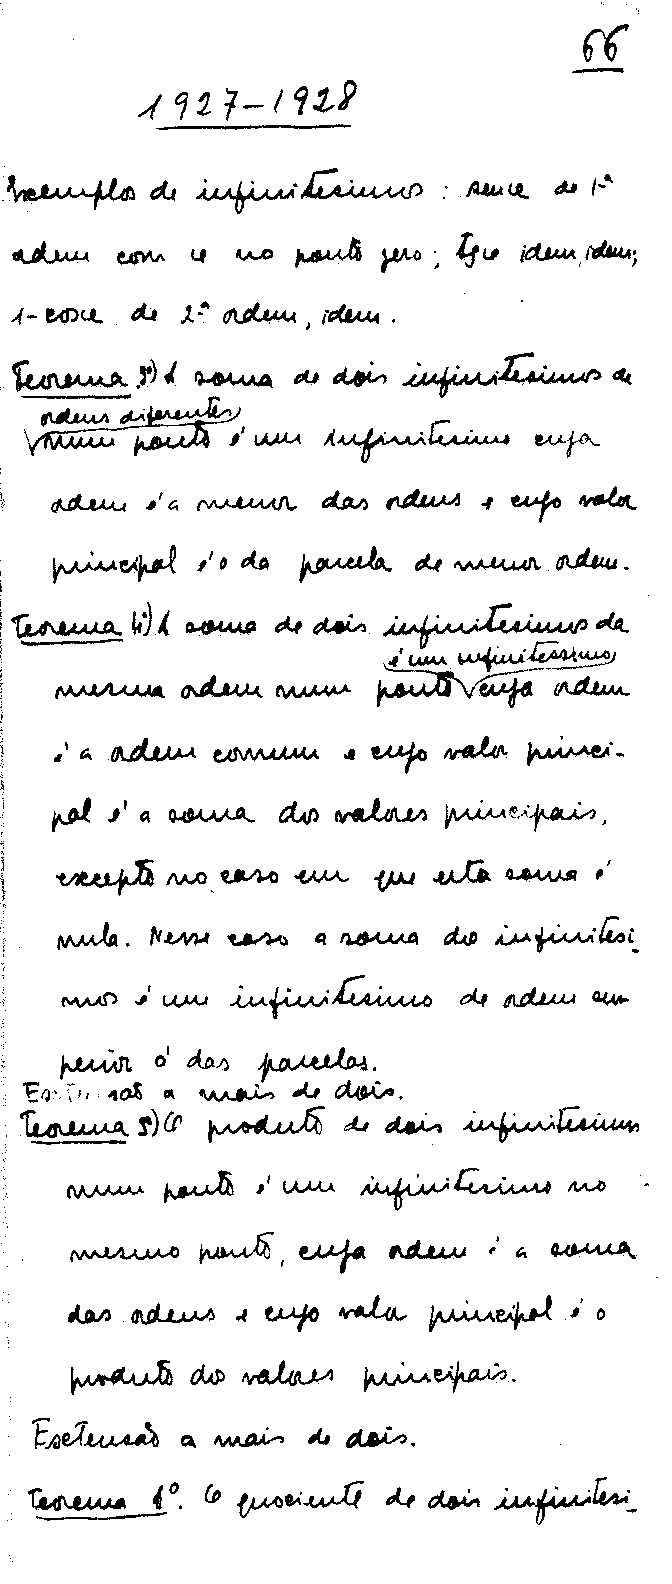 66
1927-1928
Exemplos de infinitésimos: senx de 1ª
ordem com x no ponto zero; tgx idem, idem;
1-cosx de 2ª ordem, idem.
Teorema 3º) A soma de dois infinitésimos de
ordens diferentes
num ponto é um infinitésimo cuja
ordem é a menor das ordens e cujo valor
principal é o da parcela de menor ordem.
Teorema 4º) A soma de dois infinitésimos da
é um infinitéssimo
mesma ordem num ponto cuja ordem
é a ordem comum e cujo valor princi-
pal é a soma dos valores principais,
excepto no caso em que esta soma é
nula. Nesse caso a soma do infinitési-
mos é um infinitésimo de ordem su-
perior á das parcelas.
Extensão a mais de dois.
Teorema 5º) O produto de dois infinitésimos
num ponto é um infinitésimo no
mesmo ponto, cuja ordem é a soma
das ordens e cujo valor principal é o
produto dos valores principais.
Extensão a mais de dois.
Teorema º. O quociente de dois infinitési-